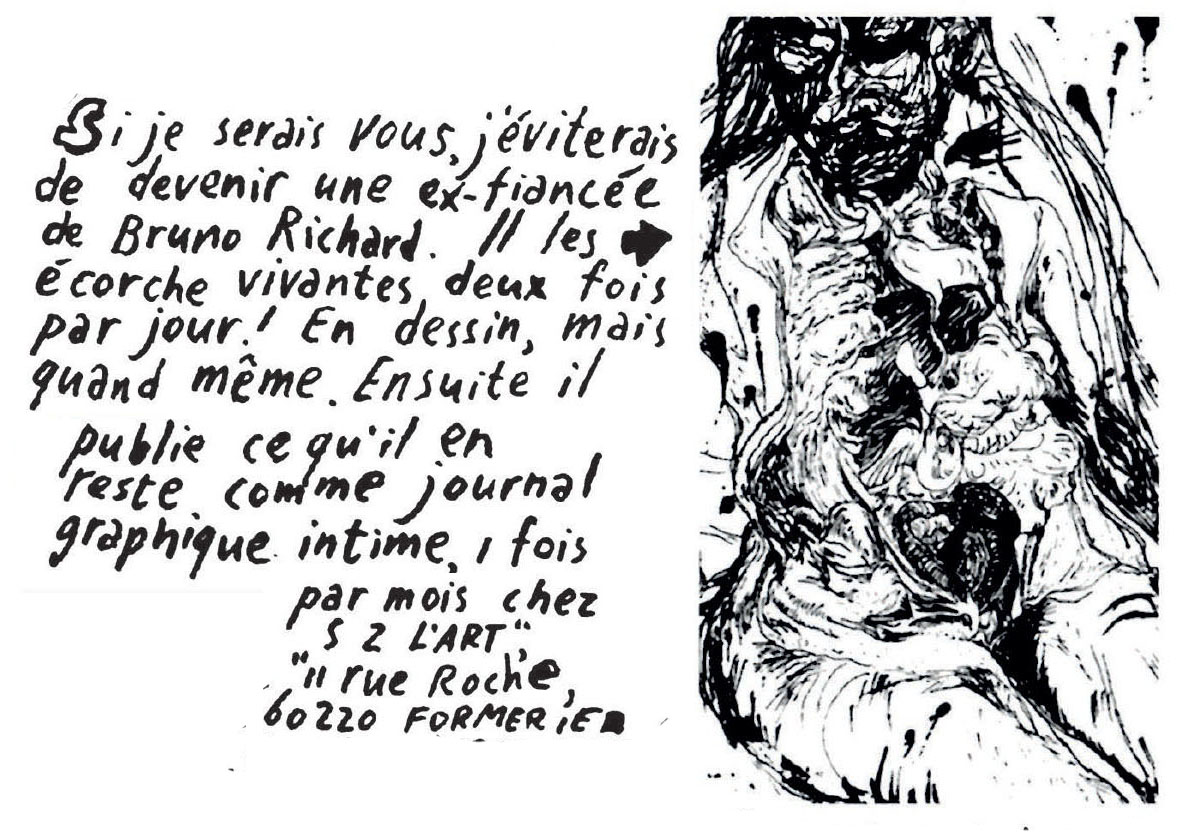 Si je serais vous, j'éviterais
de devenir une ex-fiancée
de Bruno Richard. Il les
écorche vivantes, deux fois
par jour! En dessin, mais
quand même. Ensuite il
publie ce qu'il en
reste comme journal
graphique intime, 1 fois
par mois chez
"S 2 L'ART",
11 rue Roche,
60220 FORMERIE